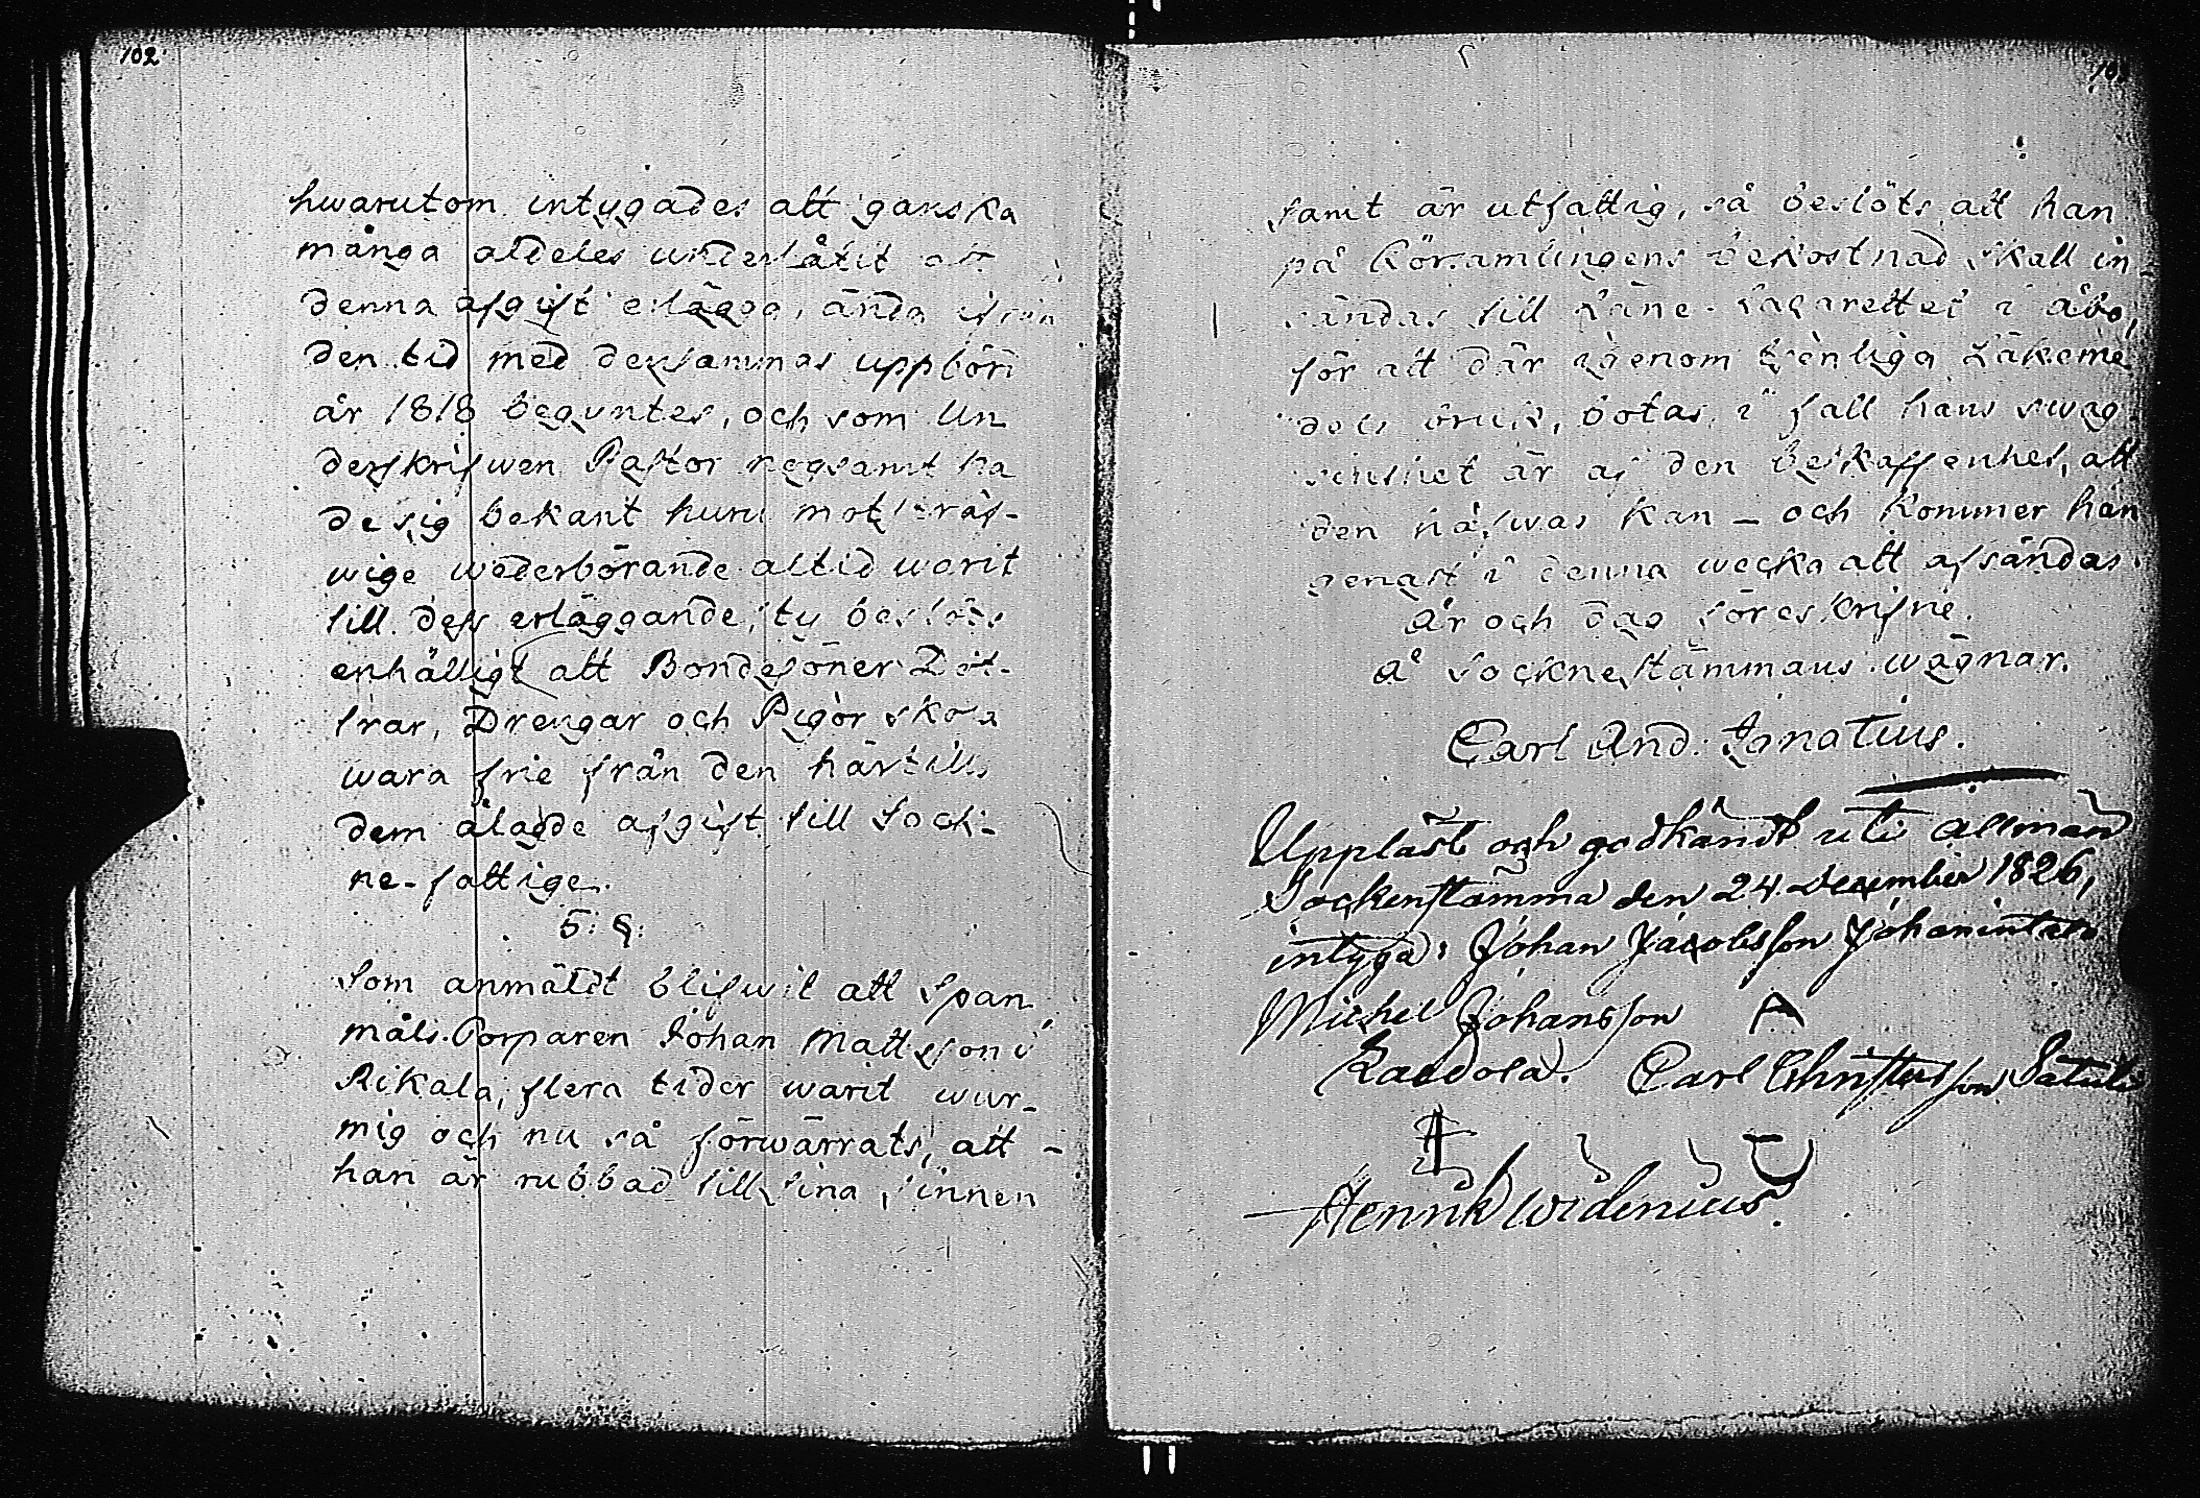 102
hwarutom intygades att ganska
många aldeles underlåtit att
denna afgift erlägga, ända ifrån
den tid med densammas uppbörd
år 1818 begyntes, och som Un
derskrifwen Pastor nogsamt ha
de sig bekant huru motsträf-
wige wederbörande altid warit
till dess erläggande, ty beslöts
enhälligt att Bondesöner Döt-
trar, Drengar och Pigor skola
wara frie från den härtills
dem ålagde afgift till Sock-
ne-fattige.
5: §:
Som anmäldt blifwit att Span
måls-Torparen Johan Mattsson i
Rikala, flera tider warit wur-
mig och nu så förwärrats, att -
han är rubbad till sina sinnen
samt är utfattig, så beslöts att han
på Församlingens bekostnad skall in-
sändas till Läne-Lazarettet i Åbo,
för att där igenom tjenliga Läkeme
dels bruk, botas, i fall hans swag
sinthet är af den beskaffenhet, att
den häfwas kan – och kommer han
genast i denna wecka att afsändas.
År och dag föreskrifne.
Å Socknestämmans wägnar.
Carl And: Ignatius.
Uppläst och godkändt uti allmän
Sockenstämma den 24 December 1826,
intyga: Johan Jacobsson Johanintalo
Michel Johansson A
Raadola. Carl Christersson Satuli
Henrik Widenius.